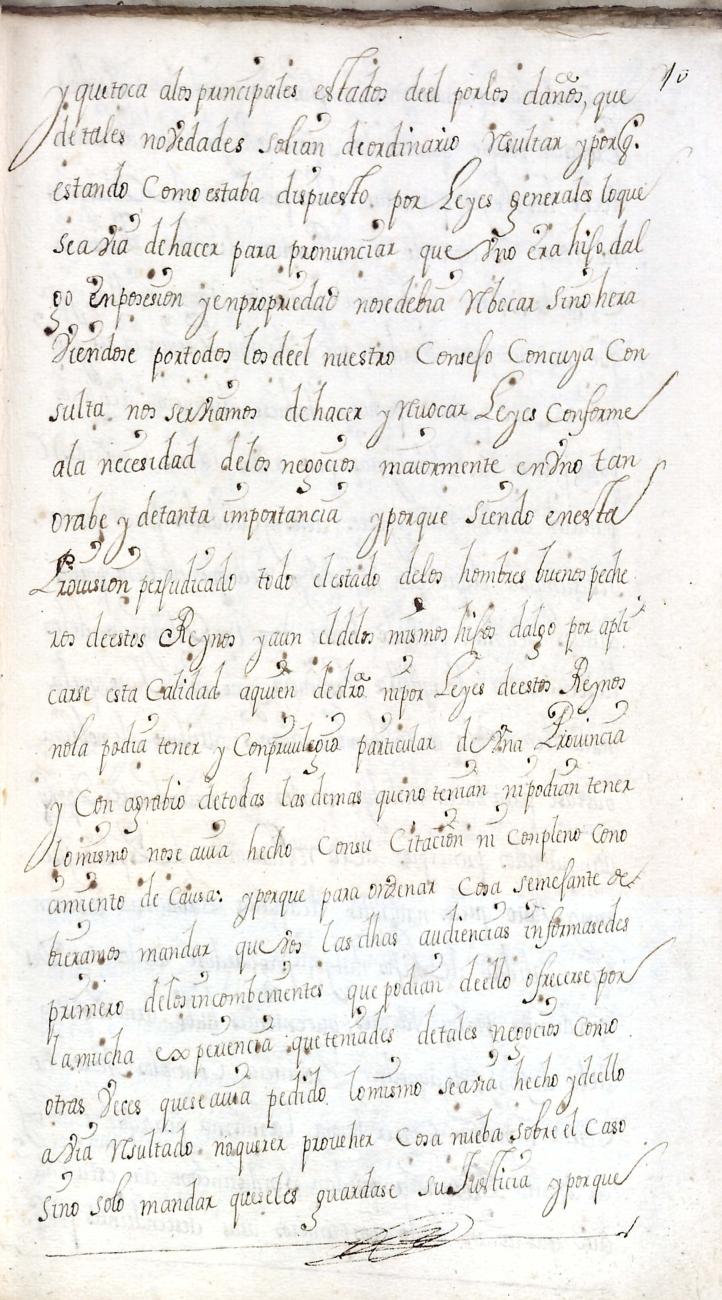 10
y qui toca alos principales estados deel porlos daños, que
de tales novedades solian deordinario Resultar y porq.
estando Como estaba dispuesto por Leyes generales loque
se avia de hacer para pronunciar que Vno era hijo,dal
go en posesion y en propriedad nose debia Rebocar sino hera
Viendose portodos los deel nuestro Consejo Concuya Con
sulta nos serviamos de hacer y Revocar Leyes Conforme
ala necesidad delos negocios maiormente en Vno tan
grabe y detanta importancia y porque siendo enesta
Provision perjudicado todo el estado delos hombres buenos peche
ros deestos Reynos y aun el delos mismos hijos dalgo por apli
carse esta Calidad aquien de dro. ni por Leyes deestos Reynos
nola podia tener y Conprivilegio particular de Vna Provincia
y Con agrabio detodas las demas queno tenian ni podian tener
lomismo nose avia hecho Consu Citacion ni Conpleno Cono
cimiento de Causa: y porque para ordenar Cosa semejante de
bieramos mandar que Vos las dhas audiencias informasedes
primero delos incombenientes que podian deello ofrecerse por
la mucha experiencia que temades detales negocios Como
otras Veces quese avia pedido lomismo se avia hecho y deello
avia Resultado no querer proveher Cosa nueba sobre el Caso
sino solo mandar queseles guardase su Justicia y porque